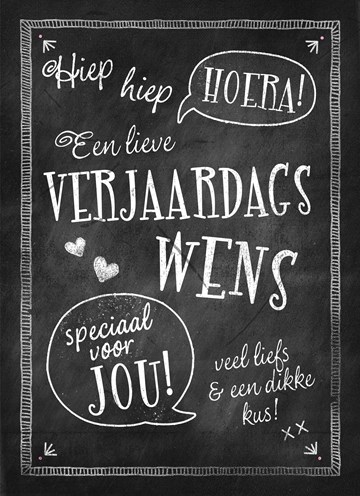 Hiep hiep HOERA!
Een lieve
VERJAARDAGS
WENS
speciaal
voor
JOU!
veel liefs
& een dikke
kus!
xx